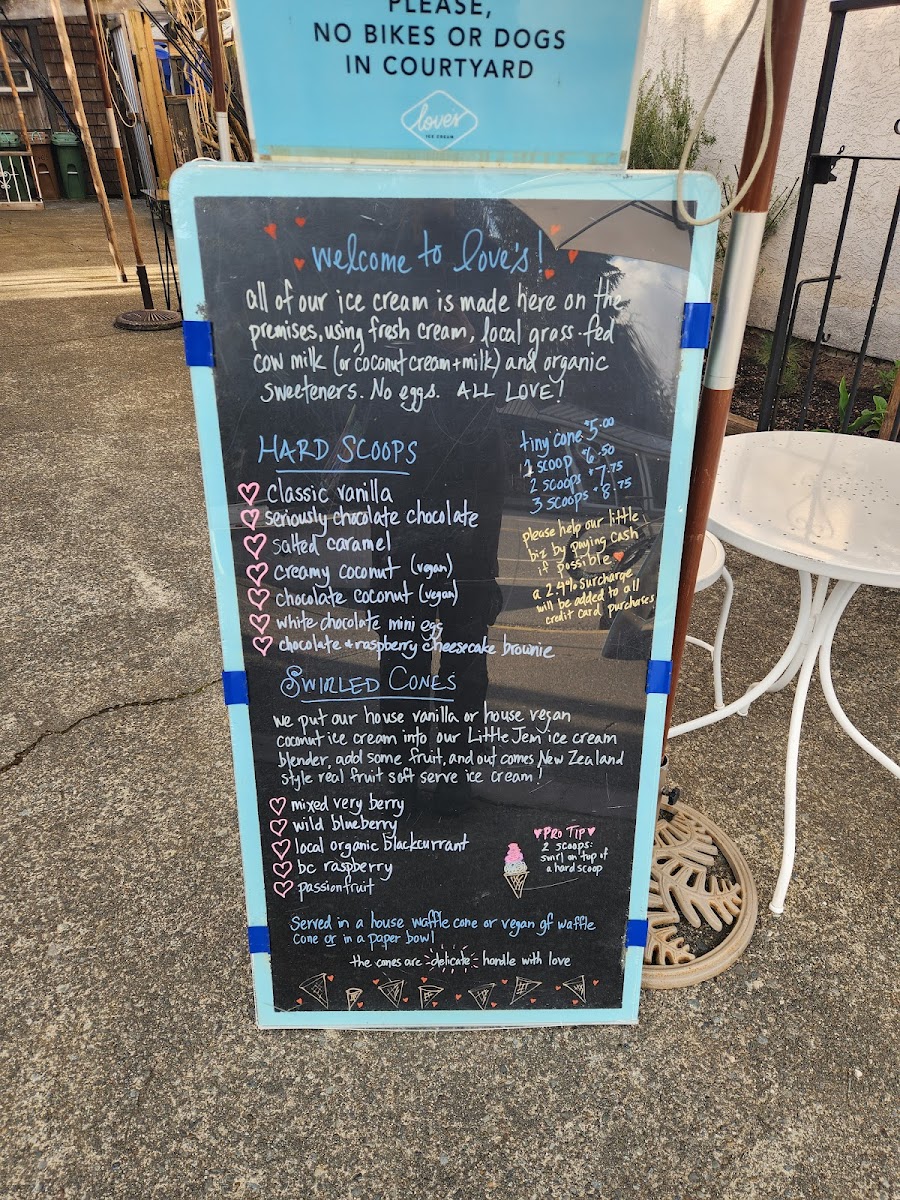 PLEASE,
NO BIKES OR DOGS
IN COURTYARD
love's
ICE CREAM
welcome to love's!
all of our ice cream is made here on the
premises, using fresh cream, local grass-fed
cow milk (or coconut cream + milk) and organic
sweeteners. No eggs. ALL LOVE!
HARD SCOOPS
classic vanilla
seriously chocolate chocolate
salted caramel
creamy coconut (vegan)
chocolate coconut (vegan)
white chocolate mini egg
chocolate + raspberry cheesecake brownie
tiny cone $5.00
1 scoop $6.50
2 scoops $7.75
3 scoops $8.75
please help our little
biz by paying cash
if possible
a 2.4% surcharge
will be added to all
credit card purchases
SWIRLED CONES
we put our house vanilla or house vegan
coconut ice cream into our Little Jem ice cream
blender, add some fruit, and out comes New Zealand
style real fruit soft serve ice cream!
mixed very berry
wild blueberry
local organic blackcurrant
bc raspberry
passionfruit
PRO TIP
2 scoops:
swirl on top of
a hard scoop
Served in a house waffle cone or vegan gf waffle
cone or in a paper bowl
the cones are -delicate- handle with love